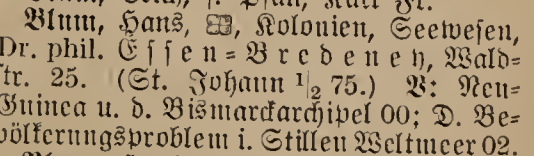 Blum, Hans, Kolonien, Seewesen,
Dr. phil. Essen-Bredeney, Wald-
str. 25. (St. Johann 1/2 75.) V: Neu-
Guinea u. d. Bismarckarchipel 00; D. Be-
völkerungsproblem i. Stillen Weltmeer 02.